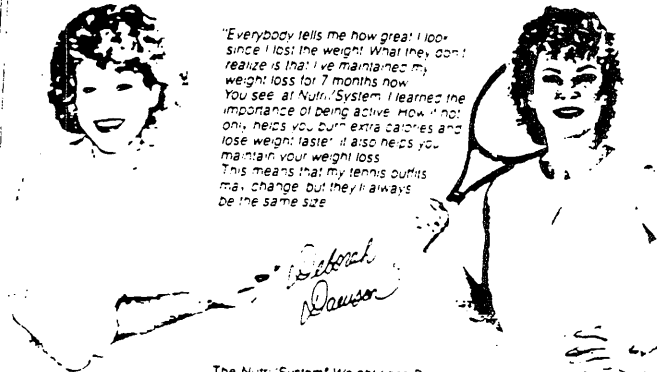 "Everybody tells me how great I look
since I lost the weight What they don't
realize is that I've maintained my
weight loss for 7 months now
You see at Nutri/System I learned the
importance of being active How it not
only helps you burn extra calories and
lose weight faster it also helps you
maintain your weight loss
This means that my tennis outfits
may change but they'll always
be the same size
Deborah
Dawson
The Nutri/System®